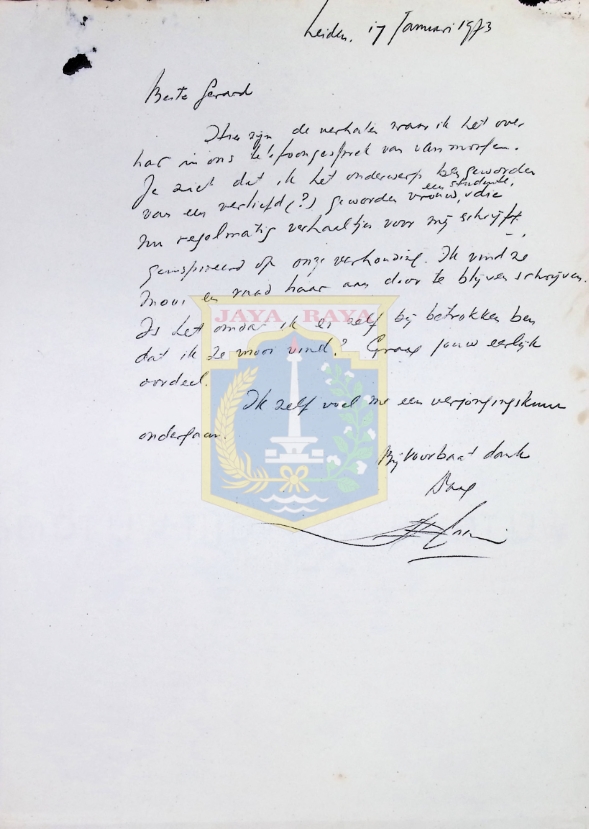 Leiden, 17 Januari 1973
Beste Gerard
Hier zijn de verhalen waar ik het over
had in ons telefoongesprek van vanmorgen.
Je ziet dat ik het onderwerp ben geworden
een studente,
van een verliefd (?) geworden vrouw, die
nu regelmatig verhaaltjes voor mij schrijft,
geinspireerd op onze verhouding. Ik vind ze
mooi en raad haar aan door te blijven schrijven.
Is het omdat ik er zelf bij betrokken ben
dat ik ze mooi vind? Graag jouw eerlijk
oordeel.
Ik zelf voel me een verjongingskuur
ondergaan.
Bij voorbaat dank
JAYA RAYA